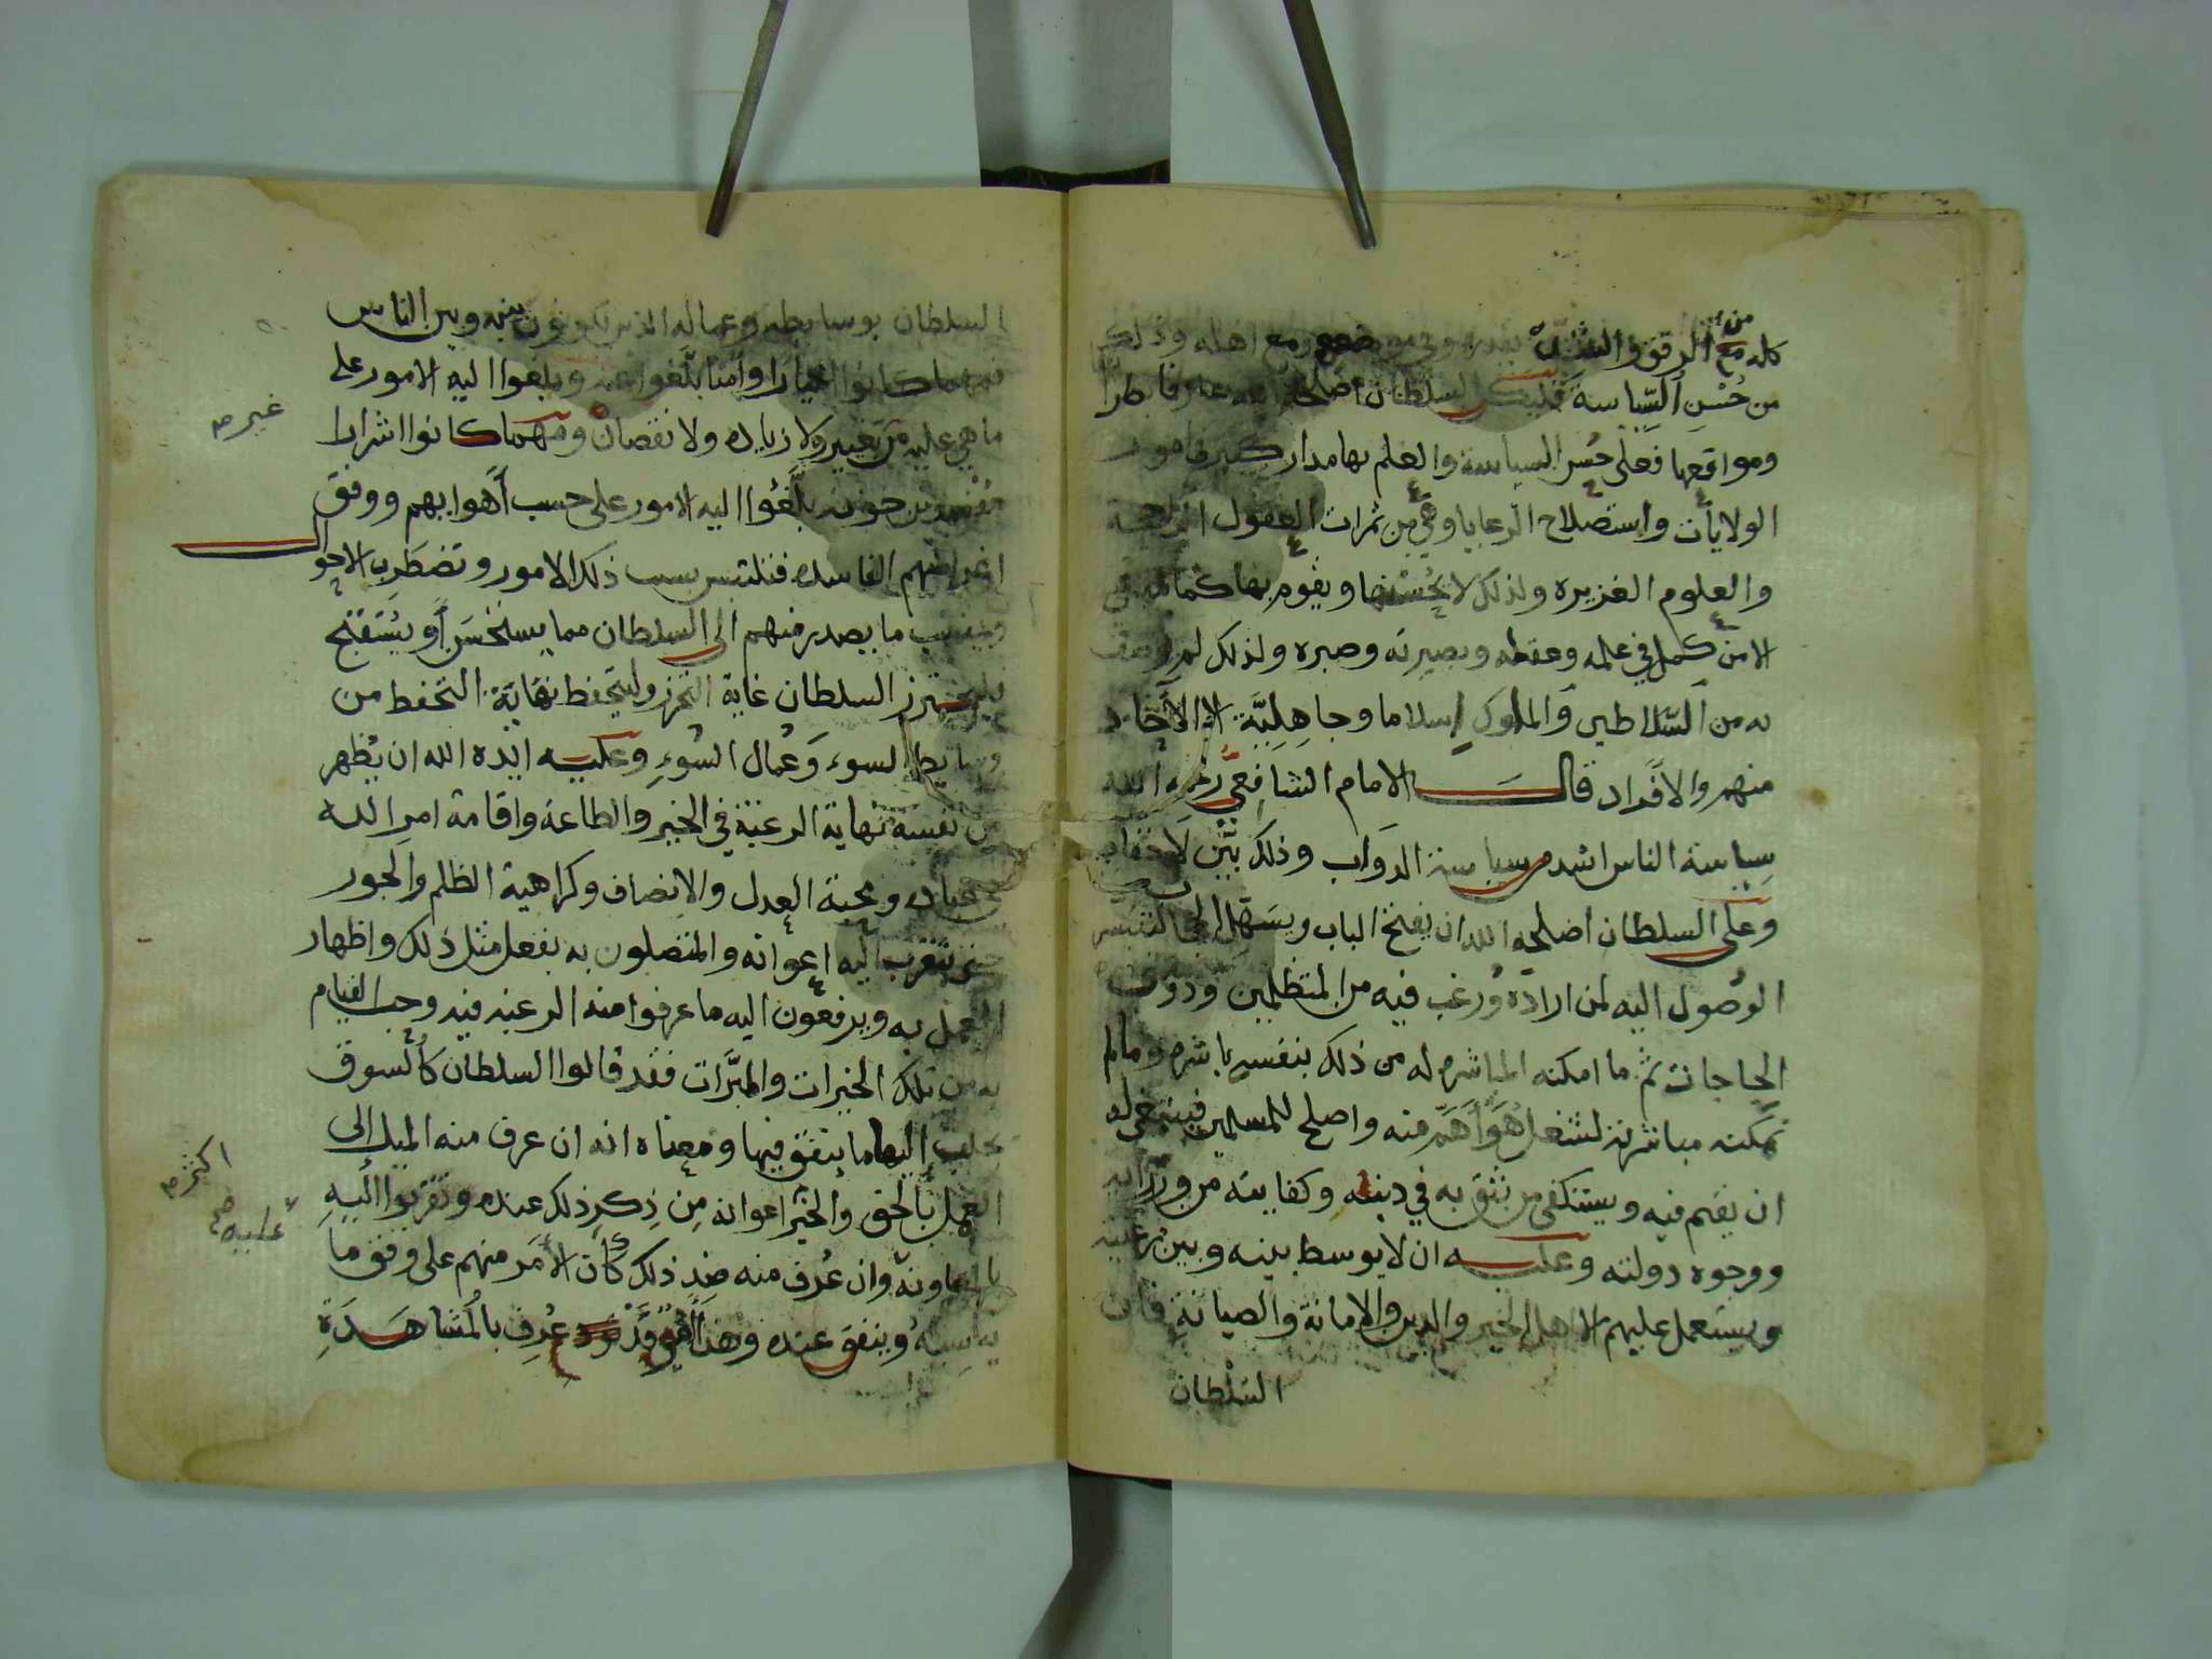 من
كله مع الرفق والشدة بقدره وفي موضعه ومع اهله وذلك
من حُسْنِ السِّياسة فليكن السلطان اصلحه الله عارفا بها
ومواقعها فعلى حُسن السياسة والعلم بها مدار كبير في امور
الولايات واستصلاح الرعايا وهي من ثمرات العقول الراجحة
والعلوم الغزيره ولذلك لا يُحْسنها ويقوم بها كما ينبغي
الا من كمل في علمه وعقله وبصيرته وصبره ولذلك لم يوصف
به من السّلاطين والملوك إسلاما وجاهِليَّة الا الآحاد
منهم والافراد قال الامام الشافِعيُّ رحمه الله
سِياسة الناس اشد من سياسة الدوَاب وذلك بيّن لا خفاء
وعلى السلطان اصلحه الله ان يفتح الباب ويسَهّل الحجاب
الوصُول اليه لمن اراده ورُغب فيه من المتظلمين وذوي
الحاجات ثم ما امكنه المباشره له من ذلك بنفسه باشره وما لم
تمكنه مباشرته لشغل هُوَ أهَمّ منه واصلح للمسلمين فينبغي له
ان يقيم فيه ويستكفي من يثق به في دينه وكفايته من وزرائه
ووجوه دولته وعليه ان لا يوسط بينه وبين رعيته
ويستعمل عليهم الا اهل الخير والدين والامانة والصيانةِ فان
السُلْطان
السلطان بوسايطه وعماله الذين يكونون بينه وبين الناس
فمهما كانوا اخيارا وامنا بلّغوا عنه وبلغوا اليه الامور على
ما هي عليه من تغيير ولا زياده ولا نقصان ومهما كانوا اشرارا
غير صح
مفسدين خونه بلَّغُوا اليه الامور على حسب أهوايهم ووفق
اغراضهم الفاسده فتلتبس بسبب ذلك الامور وتضطَرِب الاحوال
ما يصدر منهم الى السلطان مما يستحْسَن أو يُسْتقبَح
فليحترز السلطان غاية التحرز وليتحفظ نهاية التحفظ من
وسايط السوء وَعُمال السُوءِ وعليه ايده الله ان يُظهر
من نفسه نهاية الرغبة في الخير والطاعة واقامة امر الله
عباده ومحبة العدل والانصاف وكراهية الظلم والجور
يتقرب اليه اعوانه والمتصلون به بفعل مثل ذلك واظهار
العمل به ويرفعون اليه ما عرفوا منه الرغبه فيه وحب القيام
به من تلك الخيرات والمبَرَّات فقد قالوا السلطان كالسوق
يجلب اليها ما ينفق فيها ومعناه انه ان عرف منه الميل الى
العمل بالحق والخير اعوانه مِن ذِكرِ ذلك عنده وتقربوا اليهِ
اكثر صح
بالمعاونة وان عُرف منه ضِد ذلك كان الأمر منهم على وفق ما
عليه صح
يناسبهُ وينفق عنده وهذا امر قد عُرِف بالمُشاهَدَةِ